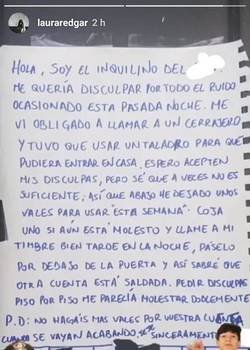 lauraredgar 2 h
HOLA, SOY EL INQUILINO DEL
ME QUERÍA DISCULPAR POR TODO EL RUIDO
OCASIONADO ESTA PASADA NOCHE. ME
VI OBLIGADO A LLAMAR A UN CERRAJERO
Y TUVO QUE USAR UN TALADRO PARA QUE
PUDIERA ENTRAR EN CASA, ESPERO ACEPTEN
MIS DISCULPAS, PERO SÉ QUE A VECES NO ES
SUFICIENTE, ASÍ QUE ABAJO HE DEJADO UNOS
VALES PARA USAR "ESTA SEMANA". COJA
UNO SI AÚN ESTÁ MOLESTO Y LLAME A MI
TIMBRE BIEN TARDE EN LA NOCHE, PÁSELO
POR DEBAJO DE LA PUERTA Y ASÍ SABRÉ QUE
OTRA CUENTA ESTÁ "SALDADA. PEDIR DISCULPAS
PISO POR PISO ME PARECÍA MOLESTAR DOBLEMENTE
P.D: NO HAGÁIS MAS VALES POR VUESTRA CUENTA
CUANDO SE VAYAN ACABANDO, SINCERAMENTE